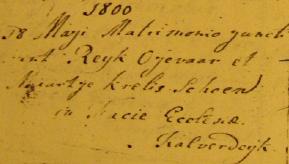 1800
18 Maji Matrimonio junct
sunt Reyk Oyevaar et
Maartje Krelis Schoen
in Facie Ecclesæ
Kalverdeyk